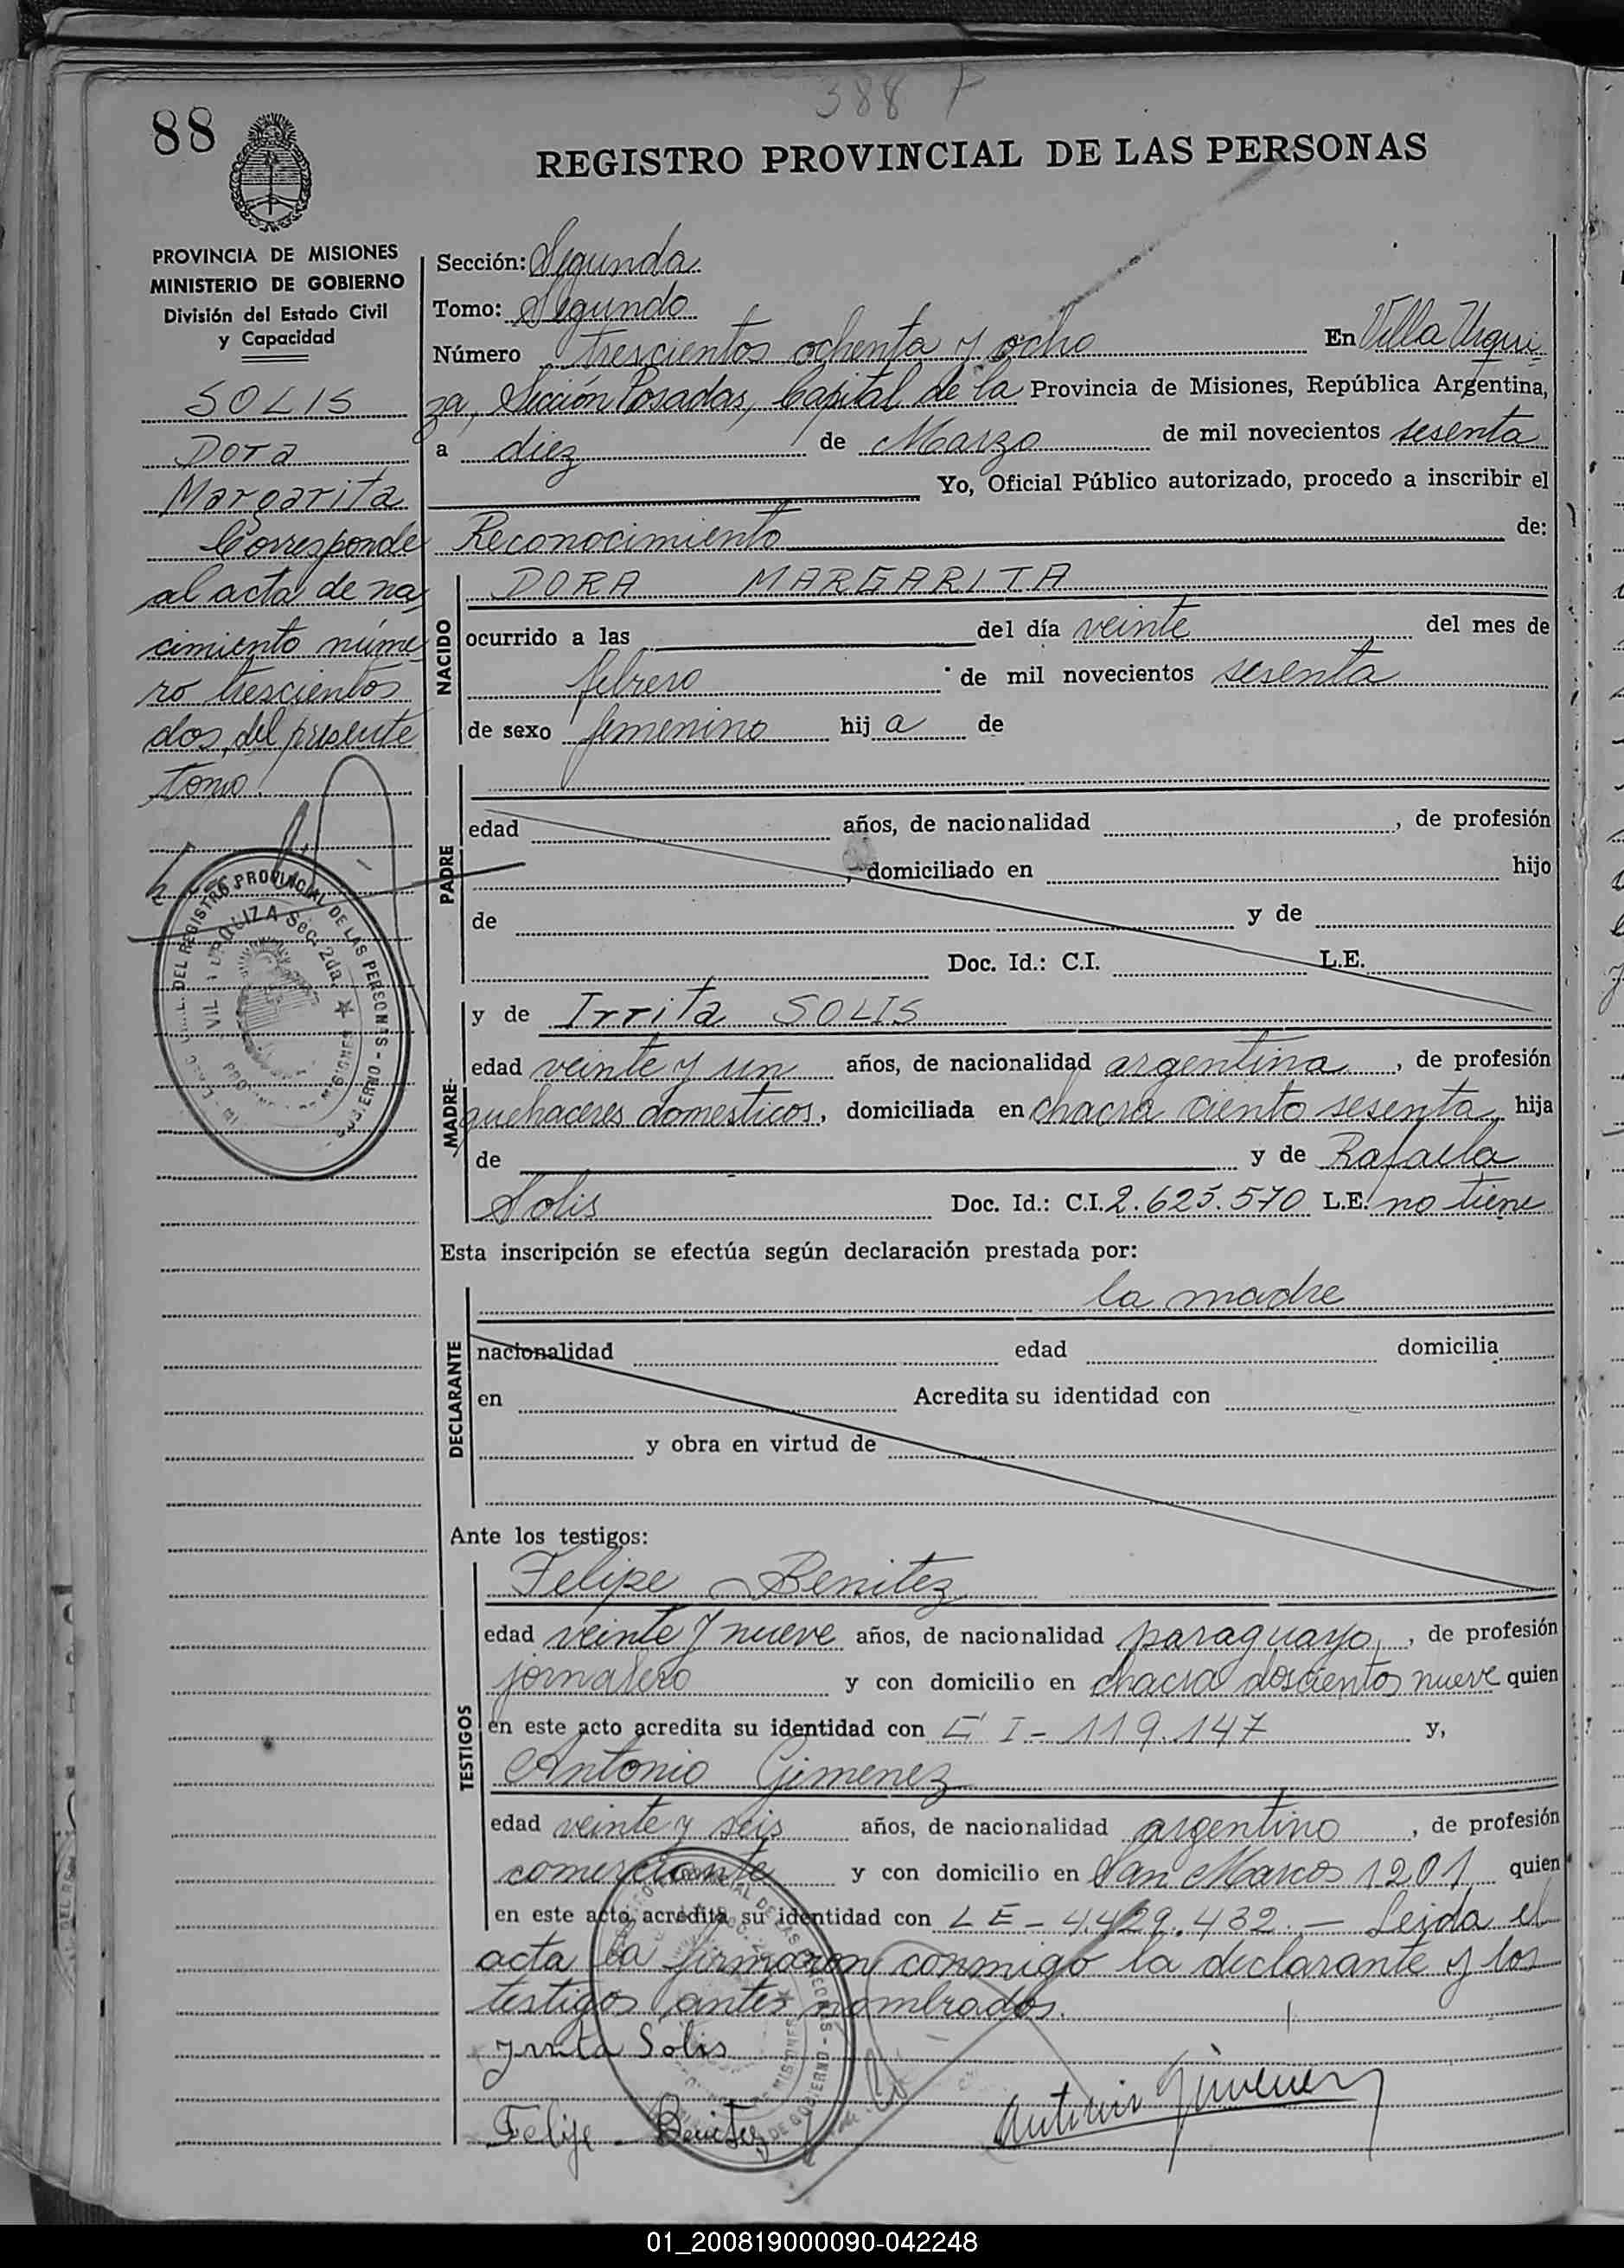 388
88
REGISTRO PROVINCIAL DE LAS PERSONAS
PROVINCIA DE MISIONES
MINISTERIO DE GOBIERNO
División del Estado Civil
y Capacidad
SOLIS
Dora
Margarita
Corresponde
al acta de na
cimiento núme
ro trescientos
dos, del presente
tomo.
Sección: Segunda
Tomo: Segundo
Número trescientos ochenta y ocho En Villa Urqui
za, Sección Posadas, Capital de la Provincia de Misiones, República Argentina,
a diez de Marzo de mil novecientos sesenta
Yo, Oficial Público autorizado, procedo a inscribir el
Reconocimiento de:
NACIDO
DORA MARGARITA
ocurrido a las del día veinte del mes de
febrero de mil novecientos sesenta
de sexo femenino hija de
PADRE
edad años, de nacionalidad , de profesión
, domiciliado en hijo
de y de
Doc. Id.: C.I. L.E.
MADRE
y de Irrita SOLIS
edad veinte y un años, de nacionalidad argentina, de profesión
quehaceres domesticos, domiciliada en chacra ciento sesenta hija
de y de Rafaela
Solis Doc. Id.: C.I. 2.625.570 L.E. no tiene
Esta inscripción se efectúa según declaración prestada por:
DECLARANTE
la madre
nacionalidad edad domicilia
en Acredita su identidad con
y obra en virtud de
Ante los testigos:
TESTIGOS
Felipe Benitez
edad veinte y nueve años, de nacionalidad paraguayo, de profesión
jornalero y con domicilio en chacra doscientos nueve quien
en este acto acredita su identidad con C I - 119.147 y,
Antonio Gimenez
edad veinte y seis años, de nacionalidad argentino, de profesión
comerciante y con domicilio en San Marcos 1201 quien
en este acto acredita su identidad con L E - 4.429.432. - Leida el
acta la firmaron conmigo la declarante y los
testigos antes nombrados.
Irrita Solis
Felipe - Benitez
Antonio Gimenez
01_200819000090-042248